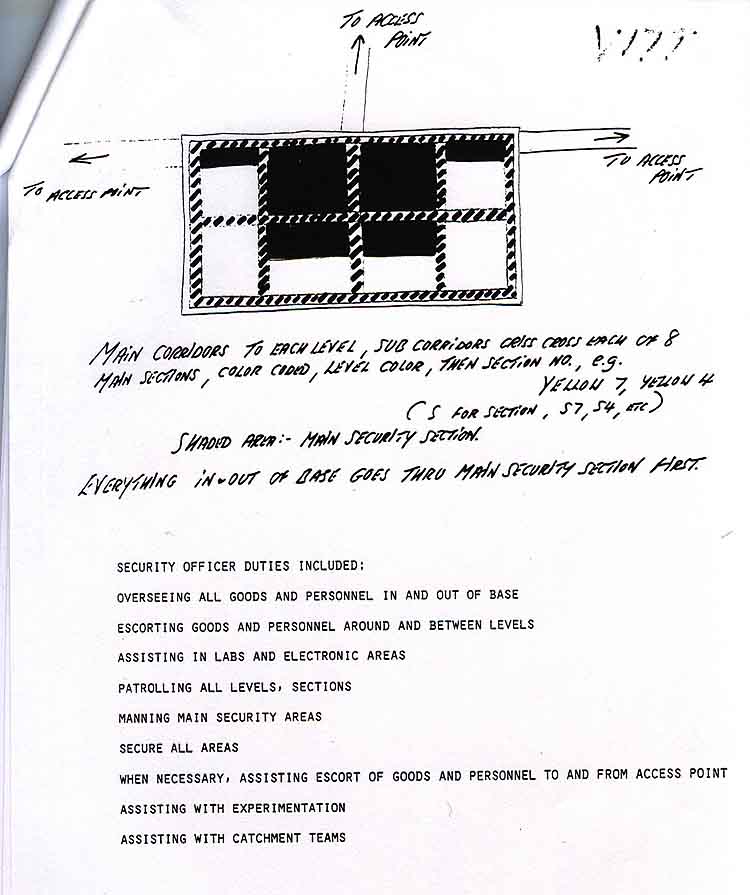 TO ACCESS
POINT
TO ACCESS POINT
TO ACCESS
POINT
MAIN CORRIDORS TO EACH LEVEL, SUB CORRIDORS CRISS CROSS EACH OF 8
MAIN SECTIONS, COLOR CODED, LEVEL COLOR, THEN SECTION NO., e.g.
YELLOW 7, YELLOW 4
(S FOR SECTION, S7, S4, ETC)
SHADED AREA:- MAIN SECURITY SECTION.
EVERYTHING IN OUT OF BASE GOES THRU MAIN SECURITY SECTION FIRST.
SECURITY OFFICER DUTIES INCLUDED:
OVERSEEING ALL GOODS AND PERSONNEL IN AND OUT OF BASE
ESCORTING GOODS AND PERSONNEL AROUND AND BETWEEN LEVELS
ASSISTING IN LABS AND ELECTRONIC AREAS
PATROLLING ALL LEVELS, SECTIONS
MANNING MAIN SECURITY AREAS
SECURE ALL AREAS
WHEN NECESSARY, ASSISTING ESCORT OF GOODS AND PERSONNEL TO AND FROM ACCESS POINT
ASSISTING WITH EXPERIMENTATION
ASSISTING WITH CATCHMENT TEAMS